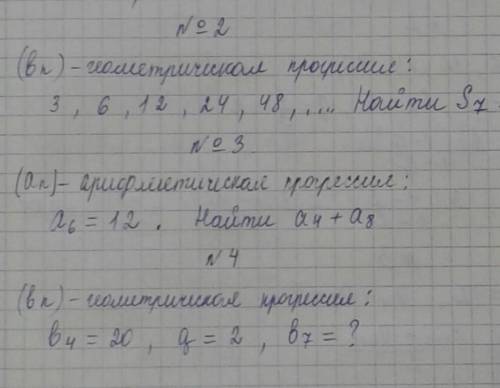 №2
(bn) - геометрическая прогрессия:
3, 6, 12, 24, 48, .... Найти S7.
№3
(an) - арифметическая прогрессия:
a6 = 12. Найти a4 + a8
N4
(bn) - геометрическая прогрессия:
b4 = 20, q = 2, b7 = ?